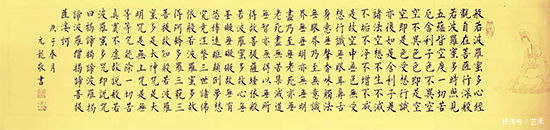 般若波羅蜜多心經
觀自在菩薩行深般
若波羅蜜多時照見
五蘊皆空度一切苦
厄舍利子色不異空
空不異色色即是空
空即是色受想行識
亦復如是舍利子是
諸法空相不生不滅
不垢不淨不增不減
是故空中無色無受
想行識無眼耳鼻舌
身意無色聲香味觸法
無眼界乃至無意識
界無無明亦無無明
盡乃至無老死亦無
老死盡無苦集滅道
無智亦無得以無所
得故菩提薩埵依般
若波羅蜜多故心無
罣礙無罣礙故無有
恐怖遠離顛倒夢想
究竟涅槃三世諸佛
依般若波羅蜜多故
得阿耨多羅三藐三
菩提故知般若波羅
蜜多是大神咒是大
明咒是無上咒是無
等等咒能除一切苦
真實不虛故說般若
波羅蜜多咒即說咒
曰揭諦揭諦波羅揭
諦波羅僧揭諦菩提
薩婆訶
庚子春月
元龍敬書
快传号 / 艺术